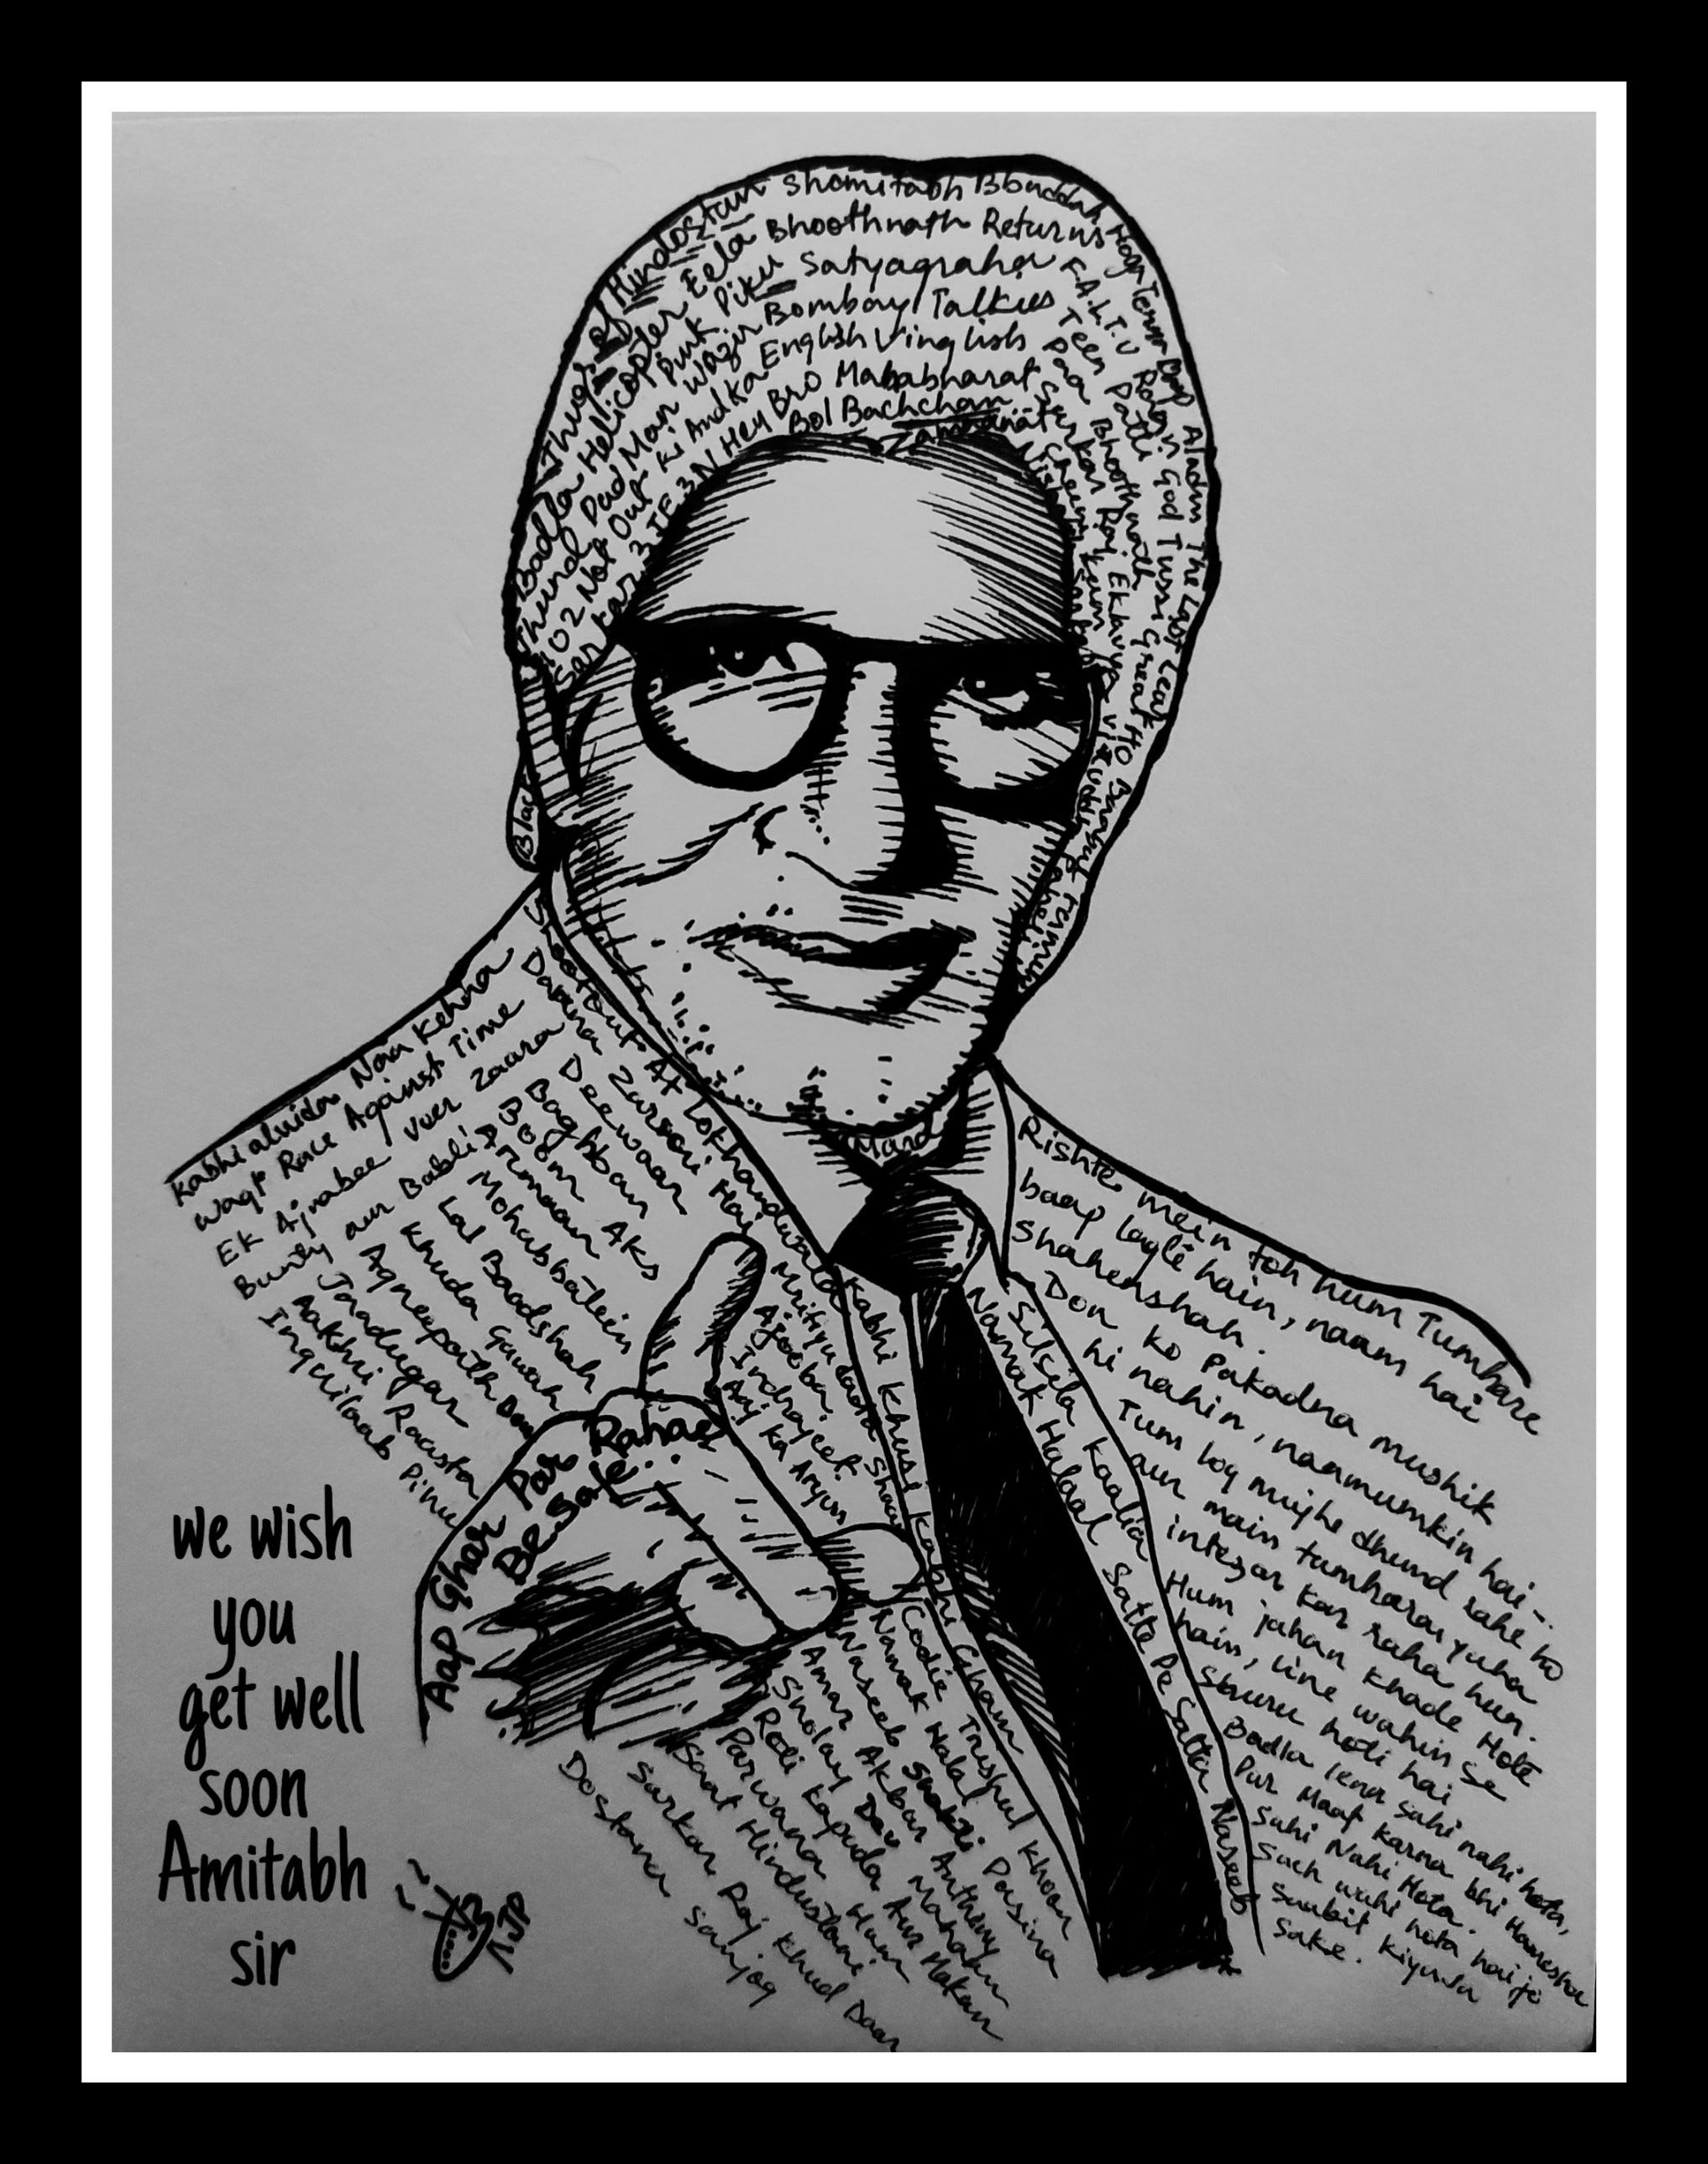 Thugs of Hindostan
Shamitabh Bbuddah Hoga Terra Baap
Aladin The Last Leaf
Badla Helicopter Eela
Bhoothnath Returns
F.A.L.T.U
God Tussi Great HO
Thund Pad Man
Pink Piku
Satyagraha
Teen Patti
102 Not Out
Wazir
Bombay Talkies
Paa Bhoothnath
Ki And Ka
English Vinglish
Sarkar Raj Eklavya
Sarkar 3 TE3N Hey Bro
Mahabharat
Bol Bachchan
Zamaanat
Cheeni Kum
Nishabd
Black
Mard
Kabhi alvida Naa Kehna
Waqt Race Against Time
Ek Ajnabee Veer Zaara
Bunty aur Babli Armaan
Aks
Shootout At Lokhandwala
Darna Zaroori Hai
Deewaar
Baghban
Boom
Mohabbatein
Lal Baadshah
Khuda Gawah
Agneepath
Jaadugar
Aakhri Raasta
Inquilaab
Mrityudaata
Ajooba
Indrajeet
Aaj Ka Arjun
Kabhi Khusi Kabhi Gham
Silsila Kaalia
Namak Halaal Satte Pe Satta Naseeb
Aap Ghar Par Rahae..
Be Safe
Coolie Trushul Khoon
Namak Halal Pasina
Naseeb Shakti
Amar Akbar Anthony
Sholay Dev Mahaan
Roti Kapada Aur Makan
Parwana Hum
Saat Hindustani
Sarkar Raj Khud Daar
Dostana Sanjog
Rishte mein toh hum Tumhare
baap lagte hain, naam hai
Shahenshah.
Don ko Pakadna mushik
hi nahin, naamumkin hai..
Tum log mujhe dhund rahe ho
aur main tumhara yaha
intezar kar raha hun.
Hum jahan khade Hote
hain, line wahin se
Shuru hoti hai
Badla lena sahi nahi hota,
Par Maaf karna bhi Hamesha
Sahi Nahi Hota.
Sach wahi hota hai jo
Saabit kiya Ja
Sake.
we wish
you
get well
soon
Amitabh
sir